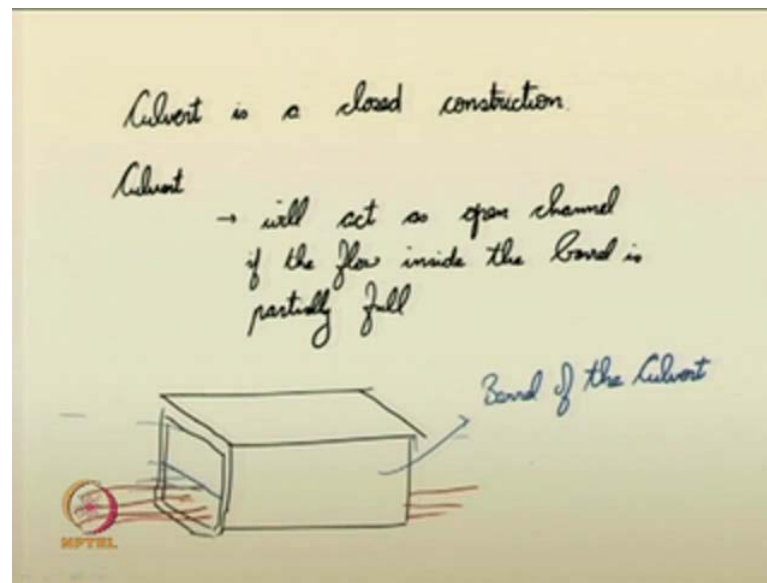 Culvert is a closed constriction.
Culvert
→ will act as open channel
if the flow inside the barrel is
partially full
Barrel of the Culvert
NPTEL